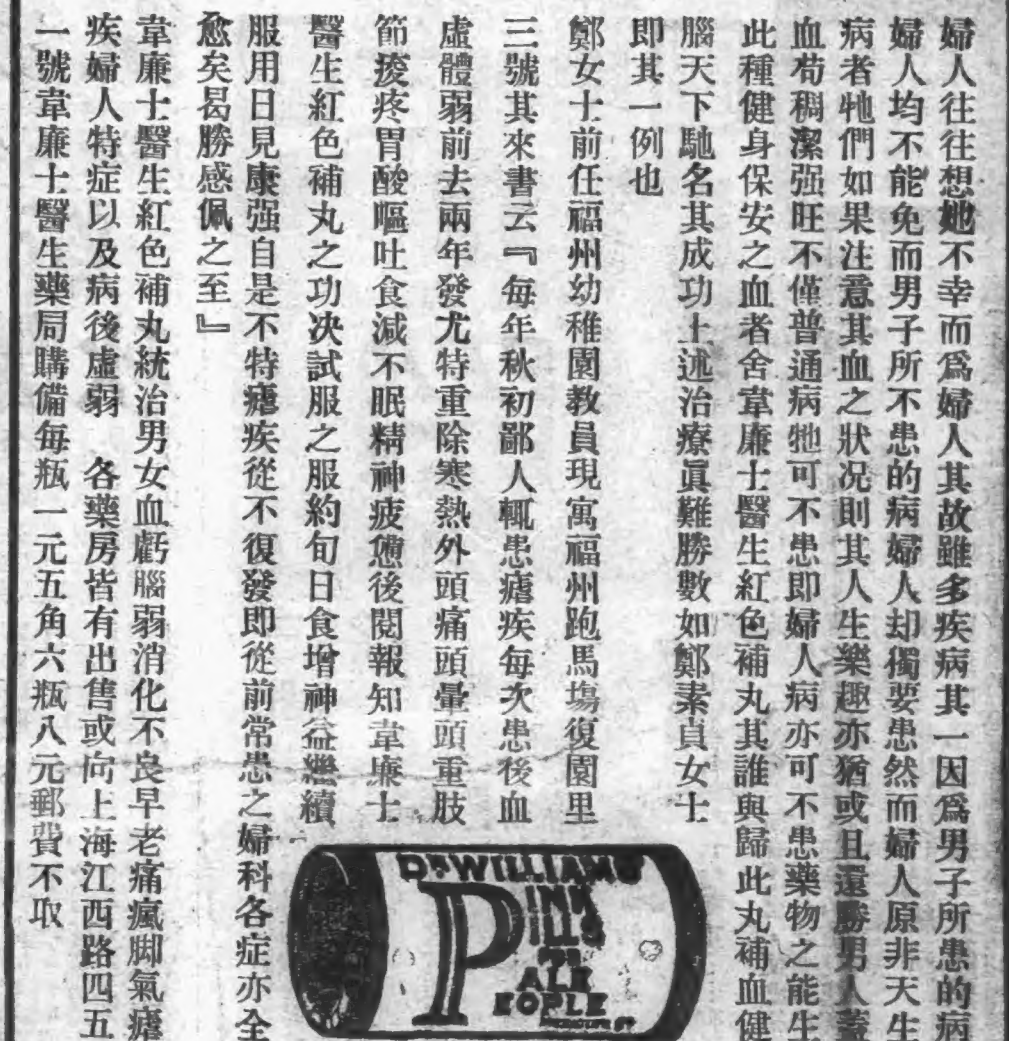 婦人往往想她不幸而爲婦人其故雖多疾病其一因爲男子所患的病
婦人均不能免而男子所不患的病婦人却獨要患然而婦人原非天生
病者牠們如果注意其血之狀况則其人生樂趣亦猶或且還勝男人蓋
血苟稠潔强旺不僅普通病牠可不患即婦人病亦可不患藥物之能生
此種健身保安之血者舍韋廉士醫生紅色補丸其誰與歸此丸補血健
腦天下馳名其成功上述治療眞難勝數如鄭素貞女士
即其一例也
鄭女士前任福州幼稚園教員現寓福州跑馬塲復園里
三號其來書云『每年秋初鄙人輒患瘧疾每次患後血
虛體弱前去兩年發尤特重除寒熱外頭痛頭暈頭重肢
節痠疼胃酸嘔吐食減不眠精神疲憊後閱報知韋廉士
醫生紅色補丸之功决試服之服約旬日食增神益繼續
服用日見康强自是不特瘧疾從不復發即從前常患之婦科各症亦全
愈矣曷勝感佩之至』
韋廉士醫生紅色補丸統治男女血虧腦弱消化不良早老痛瘋脚氣瘧
疾婦人特症以及病後虛弱 各藥房皆有出售或向上海江西路四五
一號韋廉士醫生藥局購備每瓶一元五角六瓶八元郵費不取
DR WILLIAMS
PINK
PILLS
FOR
PALE
PEOPLE